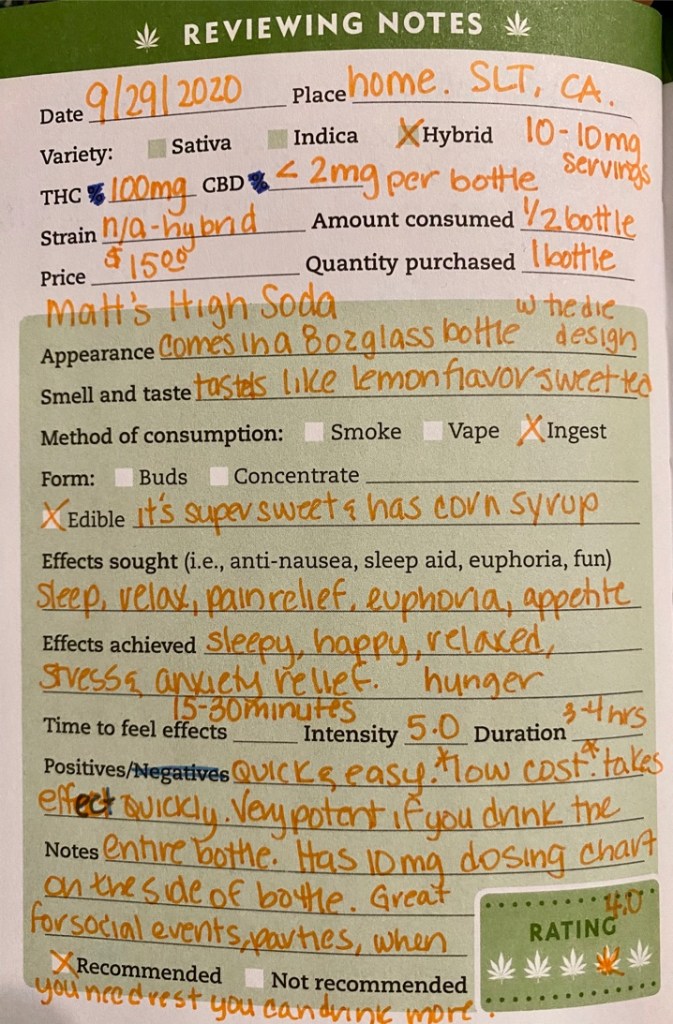 REVIEWING NOTES
Date 9/29/2020 Place home. SLT, CA.
Variety: Sativa Indica Hybrid 10-10mg servings
THC % 100mg CBD % < 2mg per bottle
Strain n/a-hybrid Amount consumed 1/2 bottle
Price $15.00 Quantity purchased 1 bottle
Matt's High Soda
Appearance comes in a 8oz glass bottle w tiedie design
Smell and taste tastes like lemon flavor sweet tea
Method of consumption: Smoke Vape Ingest
Form: Buds Concentrate
Edible it's super sweet & has corn syrup
Effects sought (i.e., anti-nausea, sleep aid, euphoria, fun)
sleep, relax, pain relief, euphoria, appetite
Effects achieved sleepy, happy, relaxed,
stress & anxiety relief. hunger
Time to feel effects 15-30 minutes Intensity 5.0 Duration 3-4 hrs
Positives/Negatives Quick & easy.* low cost.* takes
effect quickly. Very potent if you drink the
Notes entire bottle. Has 10mg dosing chart
on the side of bottle. Great
for social events, parties, when
Recommended Not recommended
you need rest you can drink more.
4.0
RATING